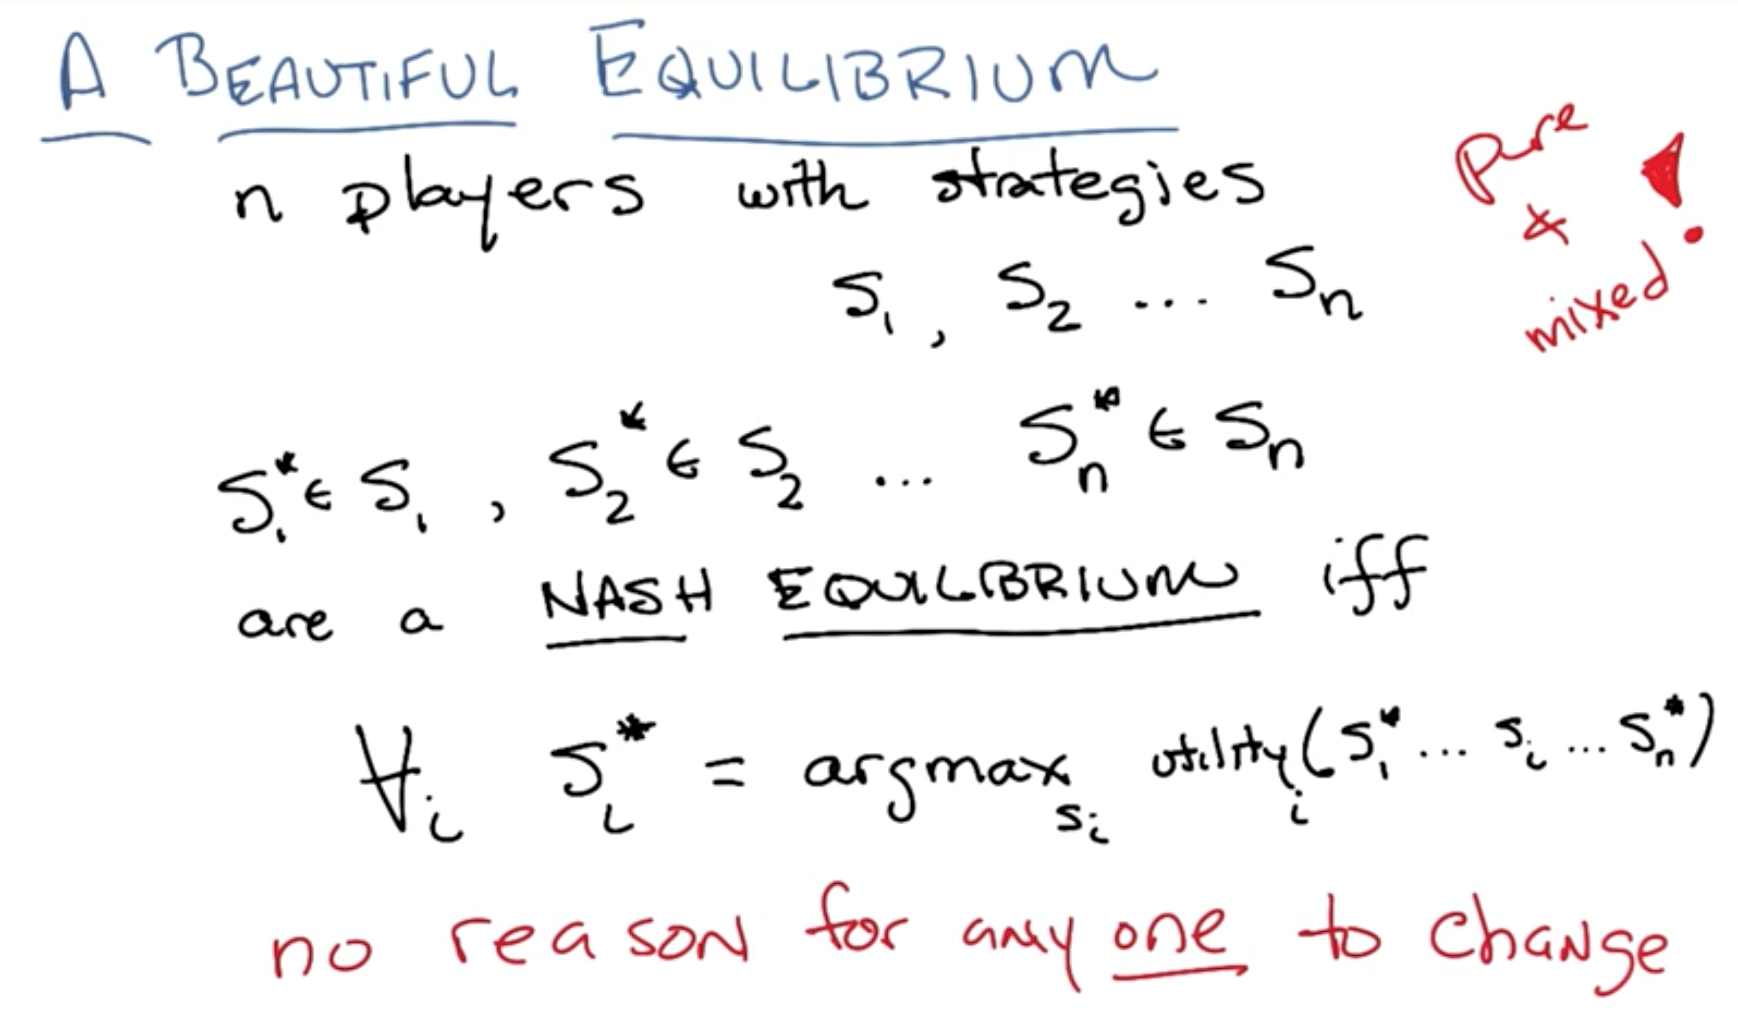 A BEAUTIFUL EQUILIBRIUM
n players with strategies
S₁, S₂ ... Sₙ
pure
&
mixed!
S₁* ∈ S₁, S₂* ∈ S₂ ... Sₙ* ∈ Sₙ
are a NASH EQUILBRIUM iff
∀ᵢ Sᵢ* = argmax_sᵢ utilityᵢ(S₁* ... sᵢ ... Sₙ*)
no reason for any one to change